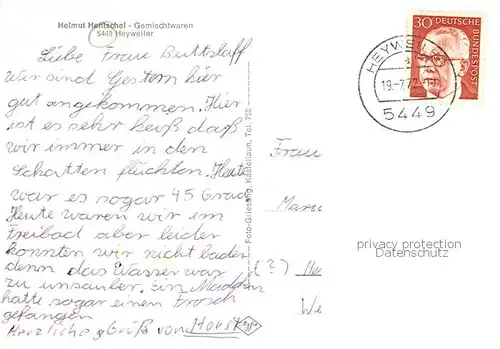 Helmut Hentschel - Gemischtwaren
5449 Heyweiler
Liebe Frau Buttslaff
wir sind Gestern hier
gut angekommen. Hier
ist es sehr heiß daß
wir immer in den
Schatten flüchten. Heute
war es sogar 45 Grad
Heute waren wir im
Freibad aber leider
konnten wir nicht baden
denn das Wasser war
zu unsauber. Ein Mädchen
hatte sogar einen Frosch
gefangen
Herzliche Grüß von Horst
Foto-Griesang, Kastellaun, Tel. 752
30 DEUTSCHE BUNDESPOST
HEYWEILER
19.-7.72
5449
Frau
(?)
We
privacy protection
Datenschutz